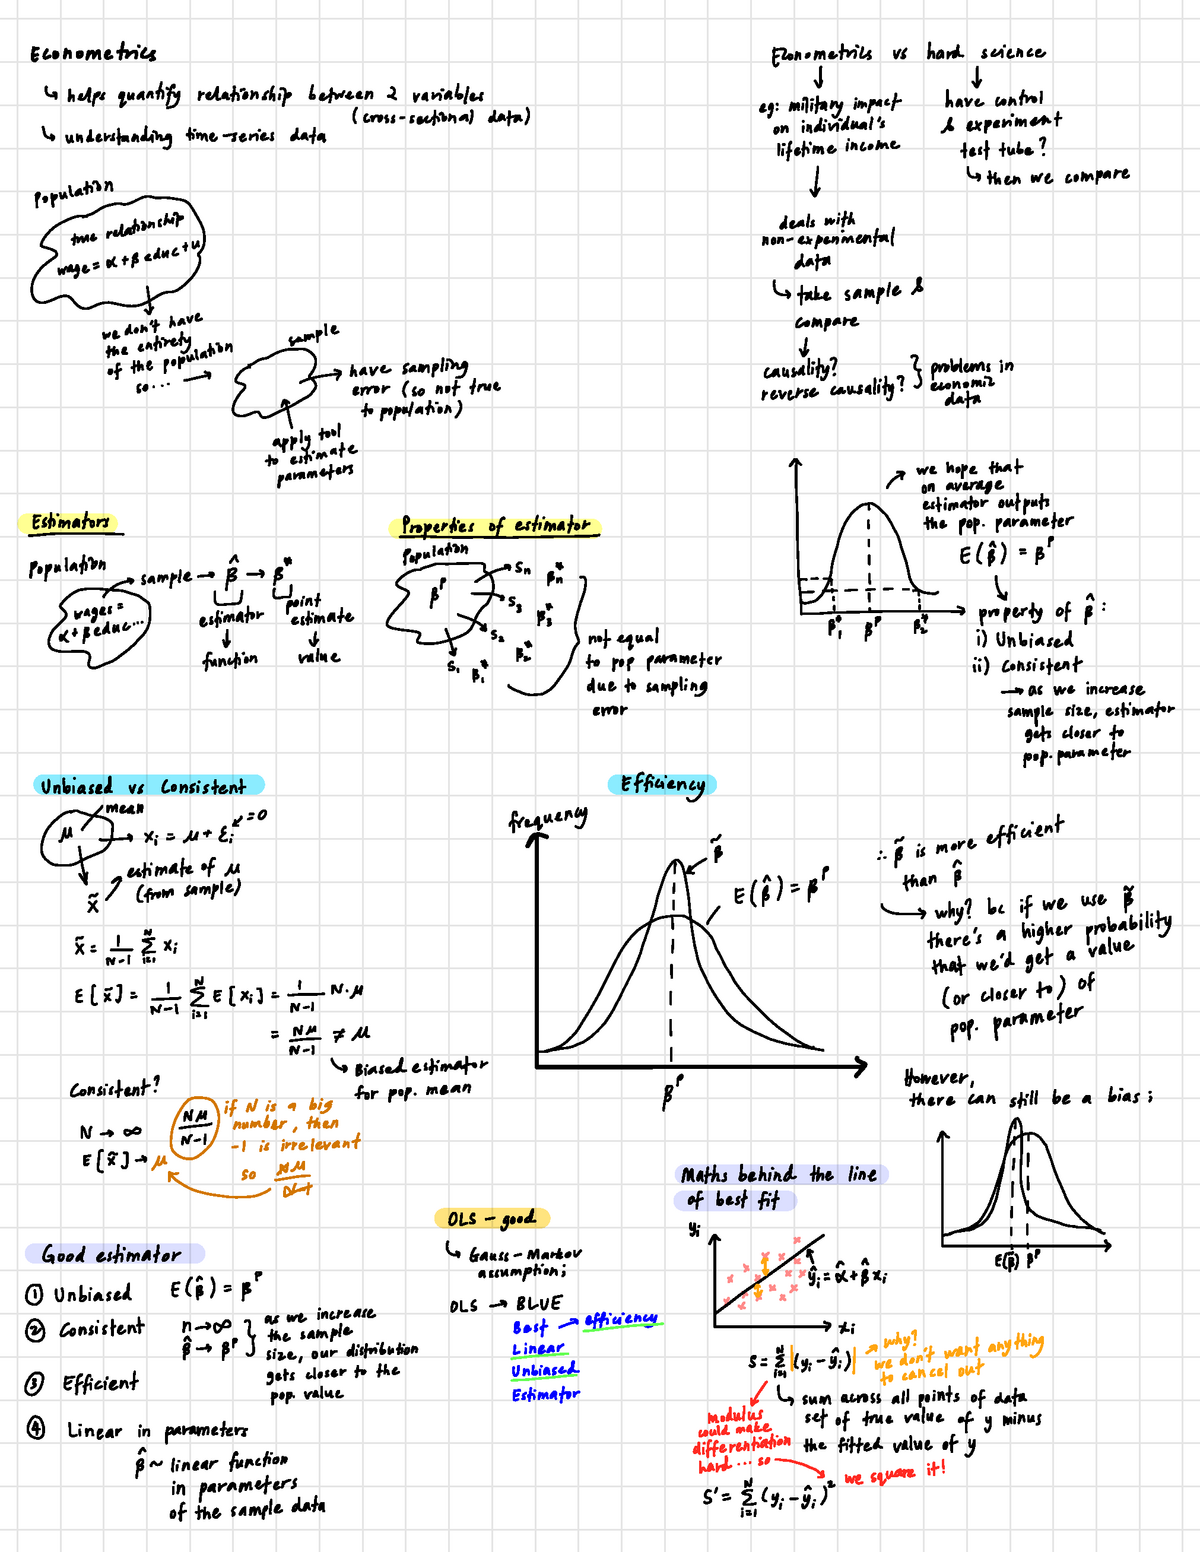 Econometrics
↳ helps quantify relationship between 2 variables
(cross-sectional data)
↳ understanding time-series data
Population
true relationship
wage = α + β educ + u
we don't have
the entirety
of the population
so... →
sample
→ have sampling
error (so not true
to population)
apply tool
to estimate
parameters
Econometrics vs hard science
eg: military impact
on individual's
lifetime income
have control
& experiment
test tube?
↳ then we compare
deals with
non-experimental
data
↳ take sample &
compare
causality?
reverse causality?
} problems in
economic
data
Estimators
Population
wages =
α + β educ...
→ sample → β̂ → β*
estimator
↓
function
point
estimate
↓
value
Properties of estimator
Population
βᵖ
Sn βn*
S3 β3*
S2 β2*
S1 β1*
not equal
to pop parameter
due to sampling
error
β1* βᵖ β2*
we hope that
on average
estimator outputs
the pop. parameter
E(β̂) = βᵖ
property of β̂ :
i) Unbiased
ii) Consistent
→ as we increase
sample size, estimator
gets closer to
pop. parameter
Unbiased vs Consistent
mean
μ → xi = μ + εi = 0
x̃
estimate of μ
(from sample)
x̃ = 1/(N-1) Σ(i=1 to N) xi
E[x̃] = 1/(N-1) Σ(i=1 to N) E[xi] = 1/(N-1) N·μ
= Nμ/(N-1) ≠ μ
↳ Biased estimator
for pop. mean
Consistent?
N → ∞
E[x̃] → μ
Nμ/(N-1)
if N is a big
number, then
-1 is irrelevant
so Nμ/(N-1)
Efficiency
frequency
β̃
E(β̂) = βᵖ
βᵖ
∴ β̃ is more efficient
than β̂
↳ why? bc if we use β̃
there's a higher probability
that we'd get a value
(or closer to) of
pop. parameter
However,
there can still be a bias;
E(β̃) βᵖ
Good estimator
① Unbiased E(β̂) = βᵖ
② Consistent n→∞
β̂ → βᵖ
} as we increase
the sample
size, our distribution
gets closer to the
pop. value
③ Efficient
④ Linear in parameters
β̂ ~ linear function
in parameters
of the sample data
OLS - good
↳ Gauss-Markov
assumption;
OLS → BLUE
Best → efficiency
Linear
Unbiased
Estimator
Maths behind the line
of best fit
yi
ŷi = α̂ + β̂xi
xi
S = Σ(i=1 to N) |(yi - ŷi)|
→ why?
we don't want anything
to cancel out
↳ sum across all points of data
set of true value of y minus
the fitted value of y
modulus
could make
differentiation
hard... so
we square it!
S' = Σ(i=1 to N) (yi - ŷi)²